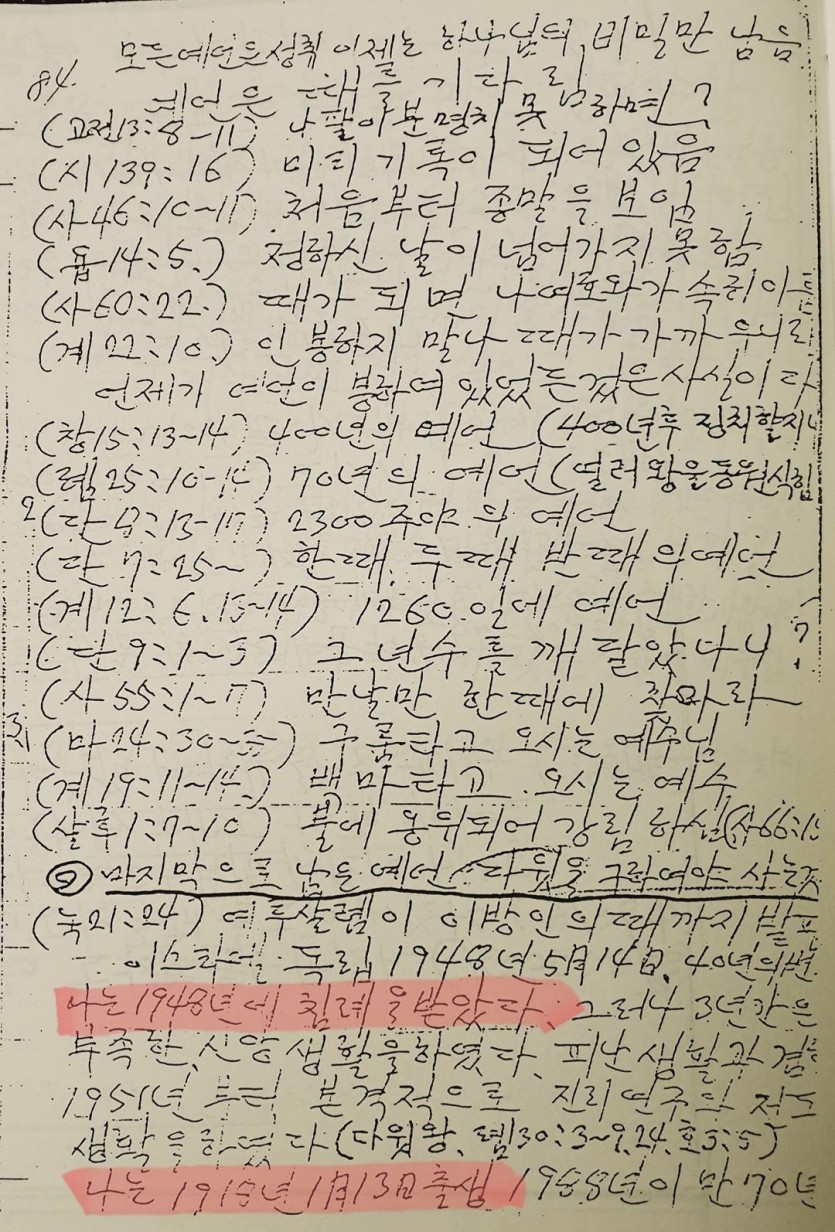 모든예언은성취 이제는 하나님의 비밀만 남음
84. 예언은 때를 기다림
(고전13:8-11) 나팔이분명치 못하면?
(시139:16) 미리 기록이 되어 있음
(사46:10~11) 처음부터 종말을 보임
(욥14:5.) 정하신 날이 넘어가지 못함
(사60:22.) 때가 되면 나여호와가 속히이
(계22:10.) 인봉하지 말나 때가 가까우니라
언제가 예언이 봉하여 있었든것은사실이다
(창15:13-14) 400년의 예언 (400년후 징치할지니
(렘25:10-14) 70년의 예언(열러왕을동원식힘
2 (단8:13-17) 2300주야의 예언
(단7:25~) 한때, 두때 반때의예언
(계12:6.13~14) 1260.일에 예언
(단9:1~3) 그 년수를 깨달았나니?
(사55:1~7) 만날만 한때에 찾으라
3. (마24:30~) 구름타고 오시는 예수님
(계19:11~14.) 백마타고.오시는 예수
(살후1:7~10) 불에 옹위되어 강림하심(사66:15
마지막으로 남은 예언 다윗을 구하여야 사는것
(눅21:24) 예루살렘이 이방인의때까지 밟
이스라엘 독립 1948년 5月14日. 40년의변
나는1948년에 침례을받았다. 그러나 3년간은
부족한 신앙생활을하였다. 피난생활과 겸
1951년부터 본격적으로 진리연구의 저
생활을하였다(다윗왕. 렘30:3~9.24.호3:5)
나는 1918년1月13日출생 1988년이 만70년